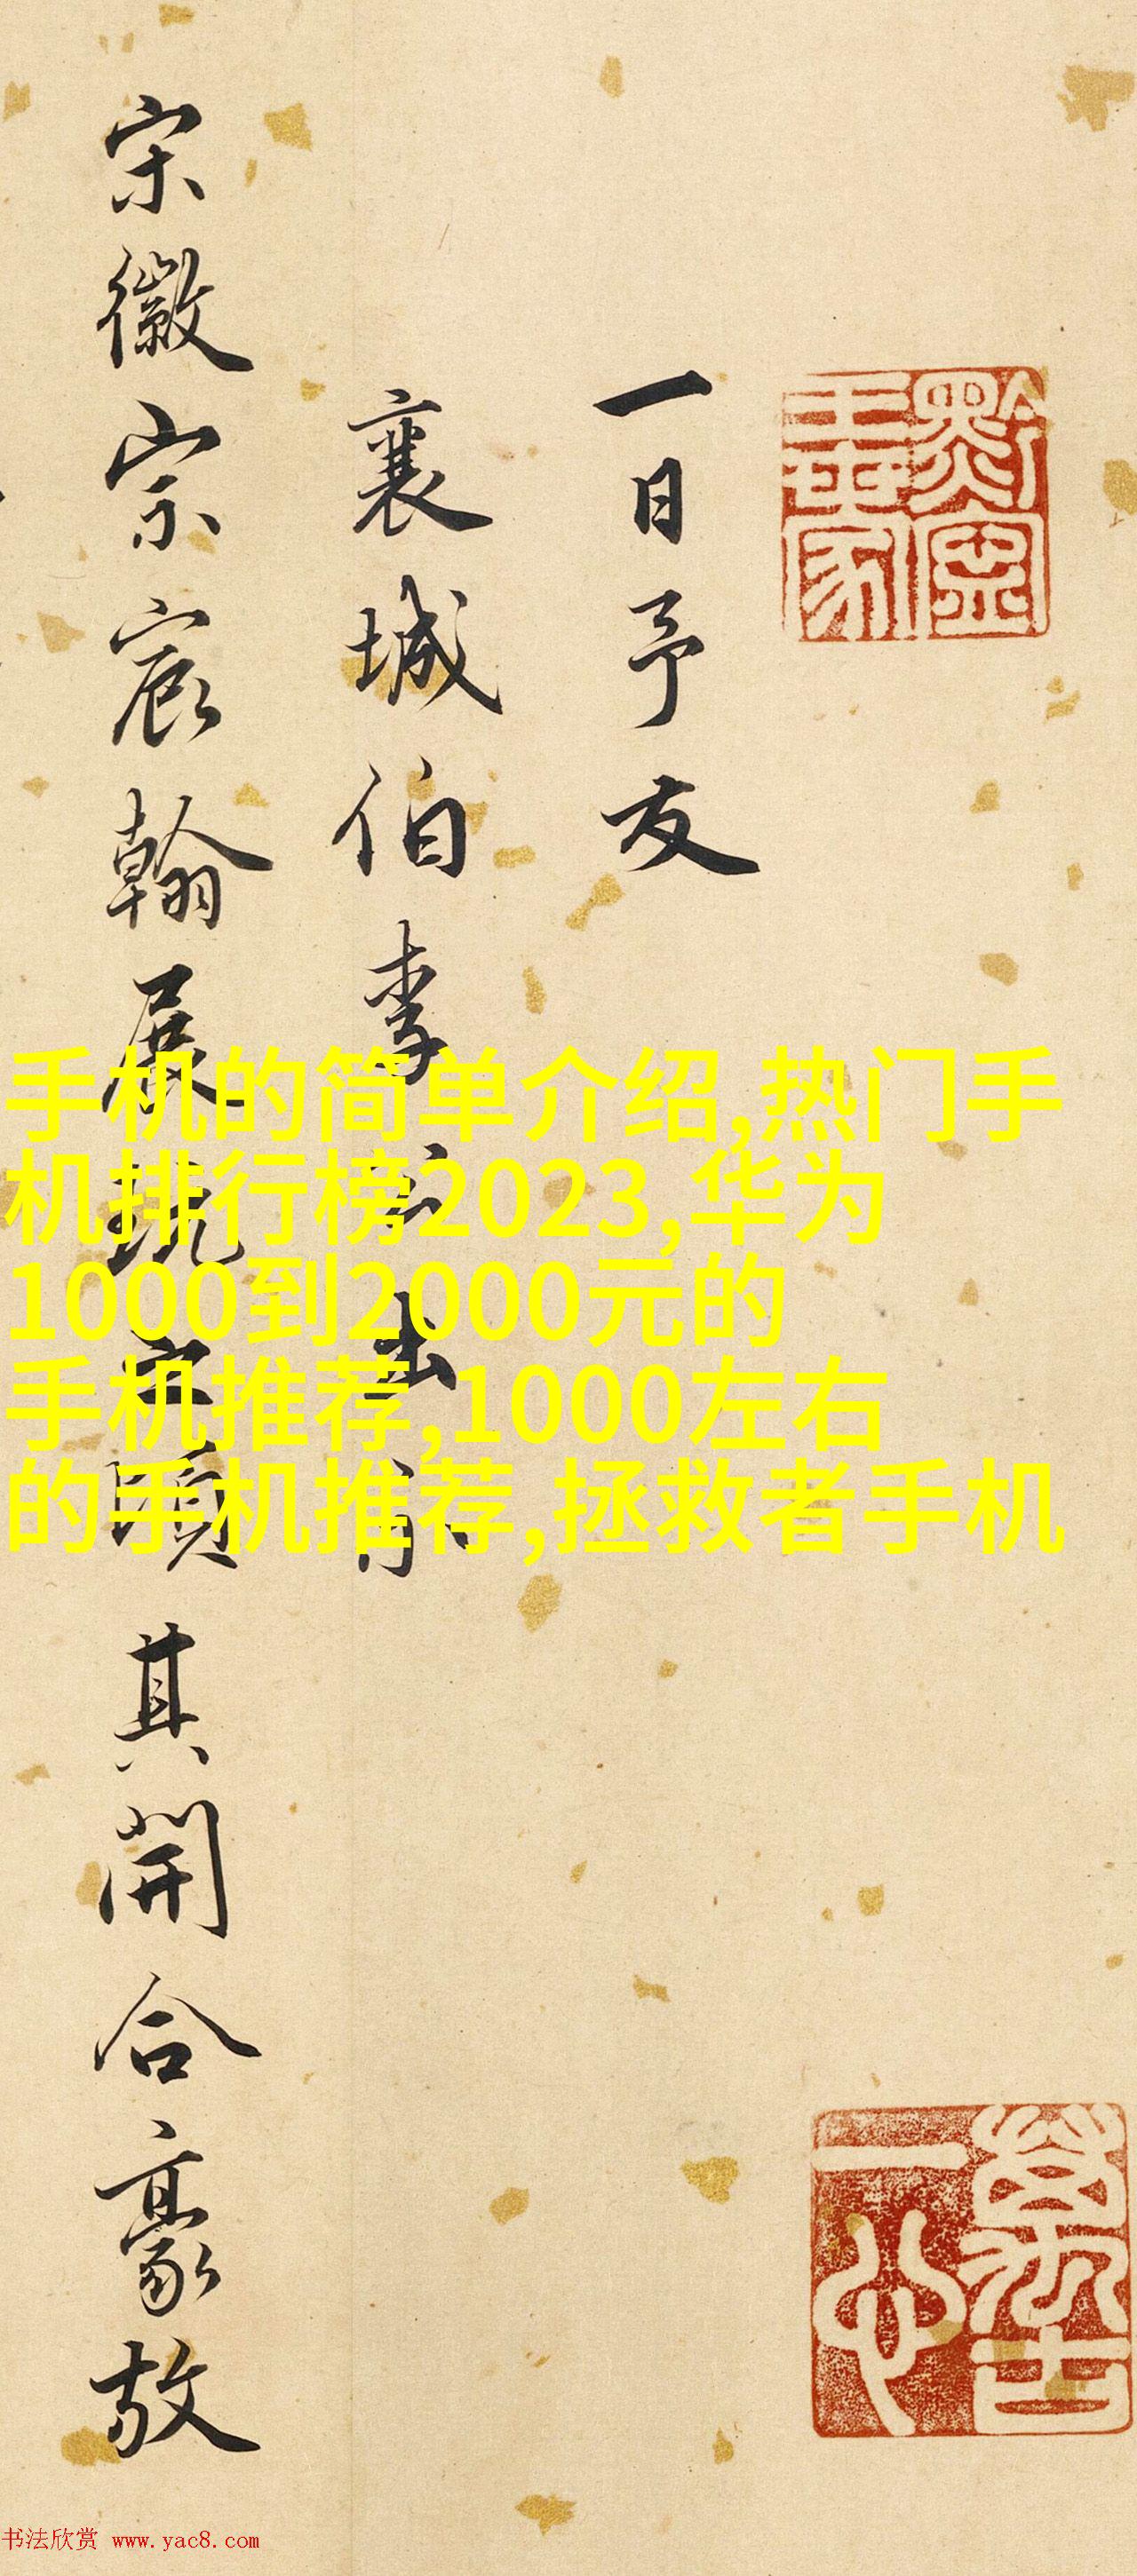 一日予友
襄城伯李
宋徽宗宸翰展玩之頃其開合豪放
手机的简单介绍,热门手
机排行榜2023,华为
1000到2000元的
手机推荐,1000左右
的手机推荐,拯救者手机
萬古
一心
书法欣赏 www.yac8.com